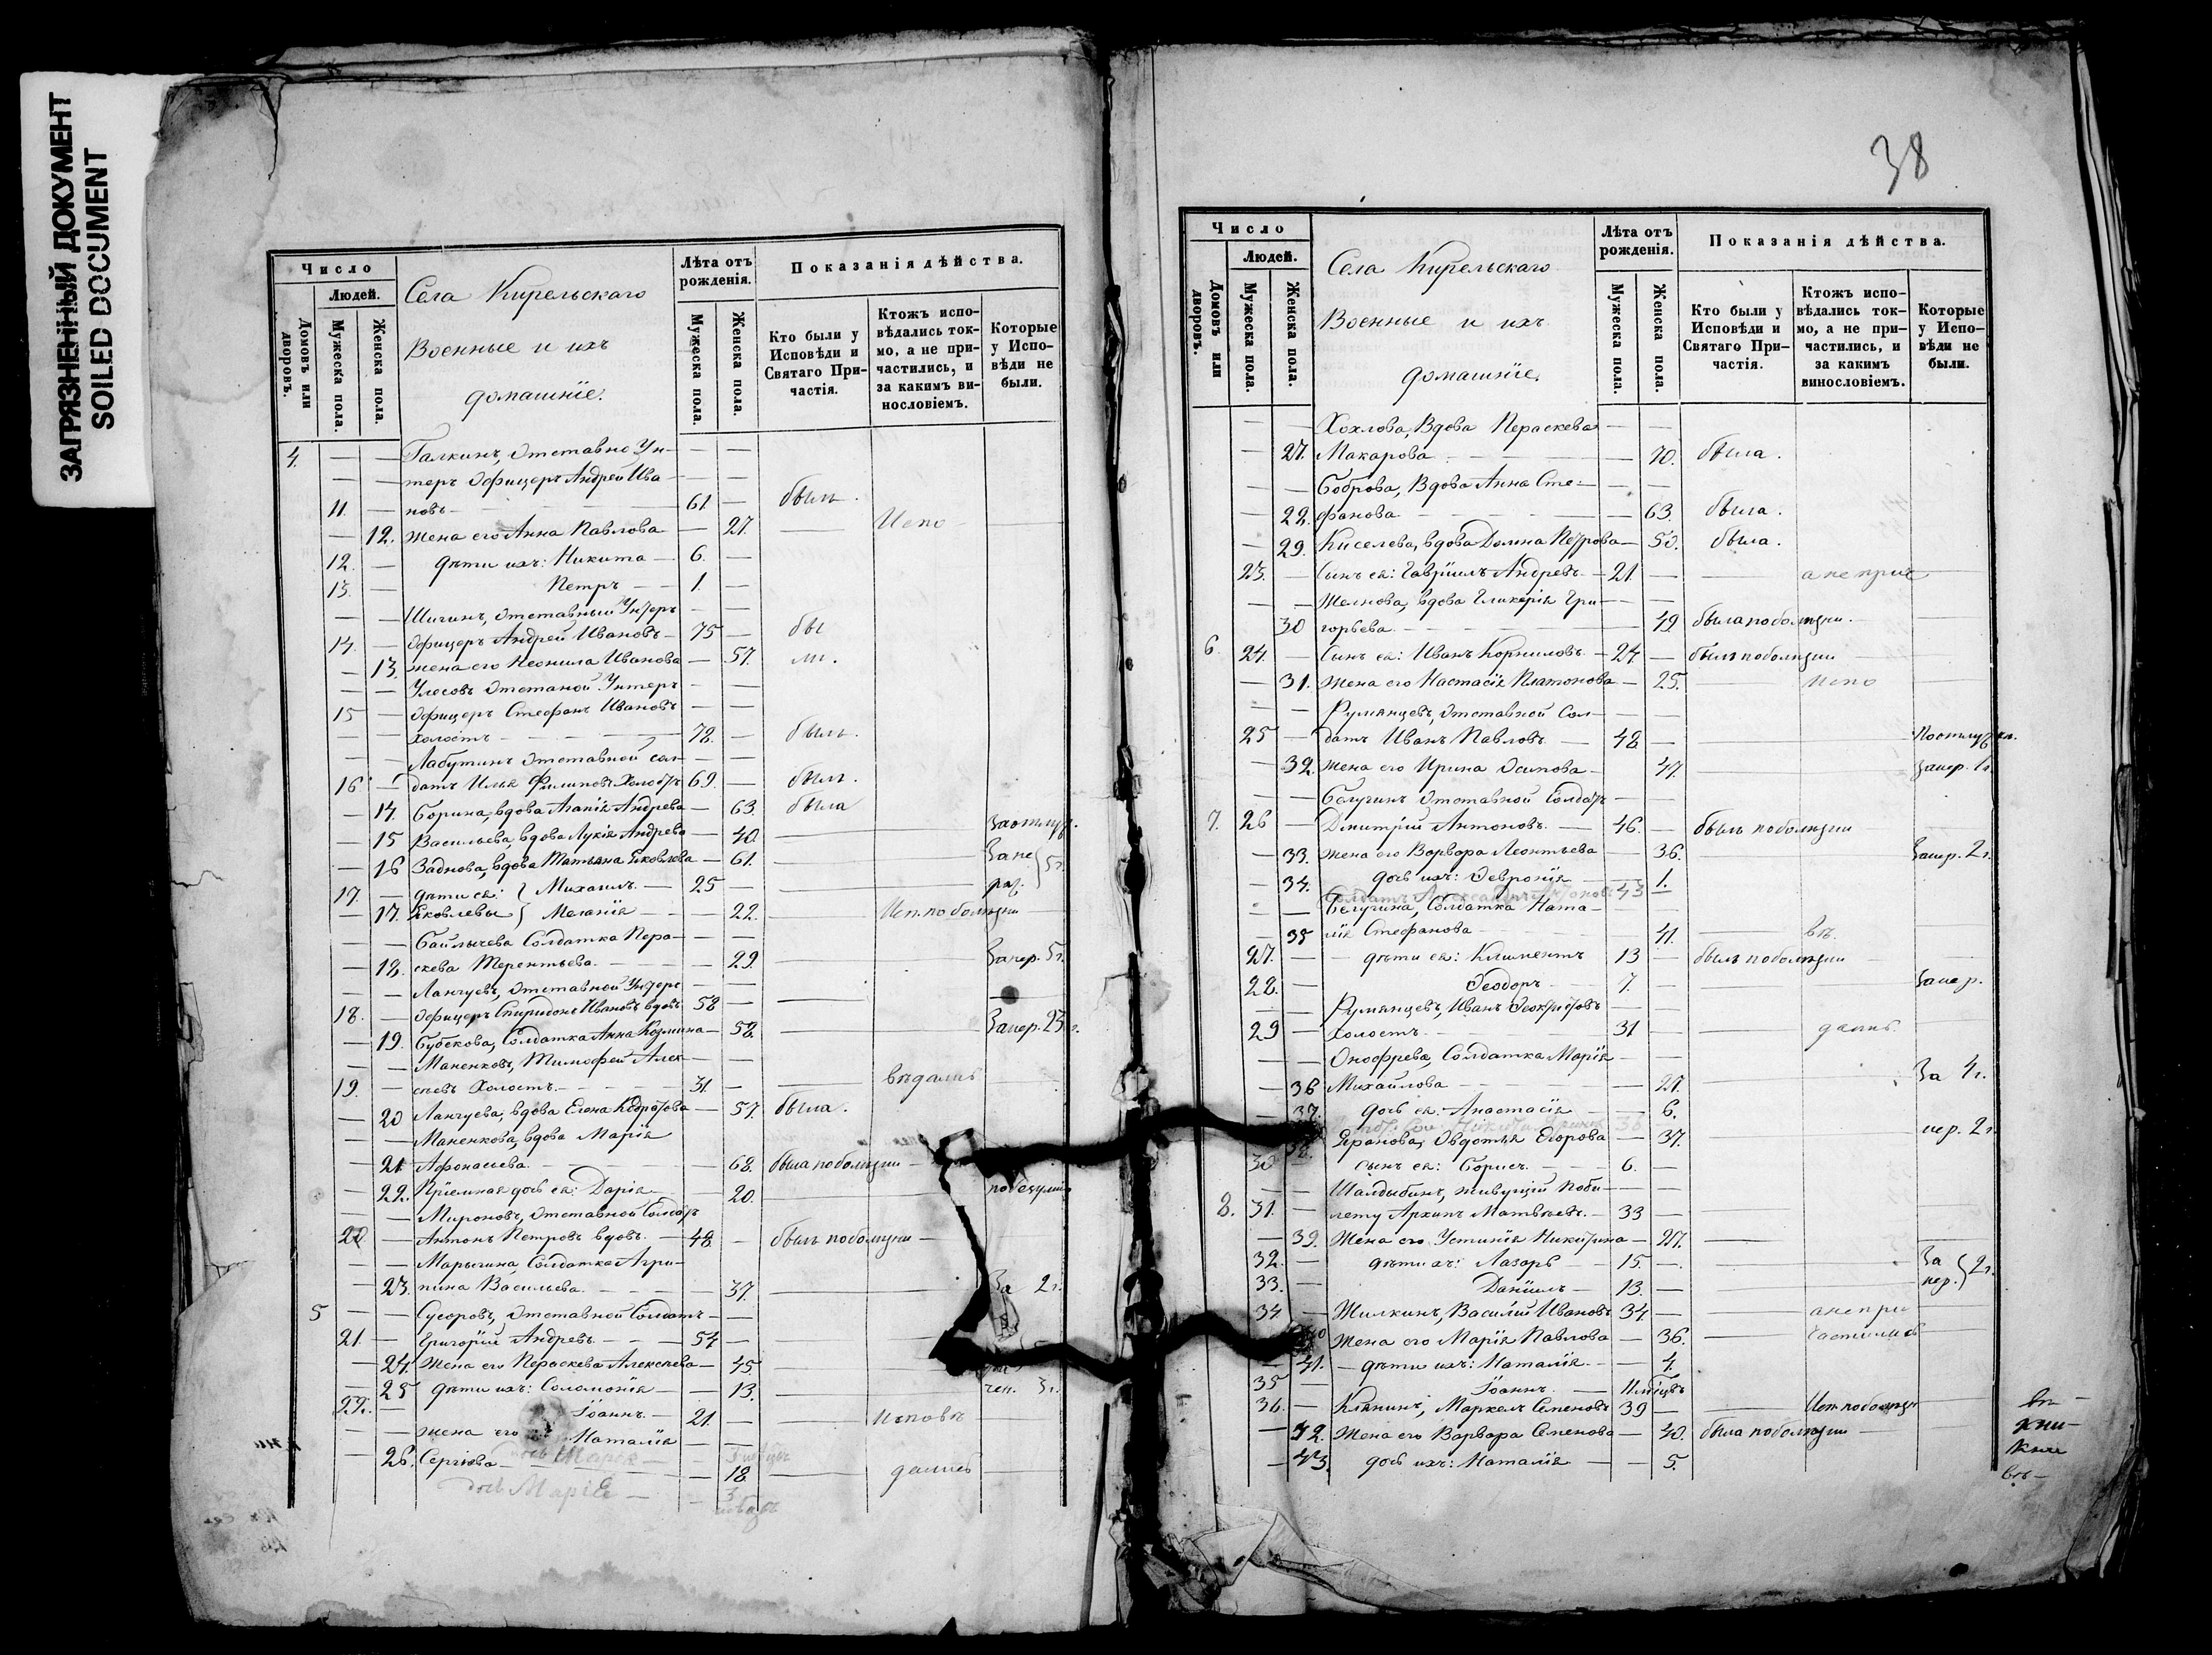 ЗАГРЯЗНЕННЫЙ ДОКУМЕНТ
SOILED DOCUMENT
Число
Людей.
Домовъ или дворовъ.
Мужеска пола.
Женска пола.
Села Кирельскаго
Военные и ихъ
домашніе.
Лѣта отъ рожденія.
Мужеска пола.
Женска пола.
Показанія дѣйства.
Кто были у Исповѣди и Святаго Причастія.
Ктожъ исповѣдались токмо, а не причастились, и за какимъ винословіемъ.
Которые у Исповѣди не были.
4. — — Галкинъ, Отставно Ун- — —
— — теръ Офицеръ Андрей Ива — —
11. — новъ — 61 — былъ.
— 12. жена его Анна Павлова — 27. — Испо
12. — дѣти ихъ: Никита — 6. —
13. — Петръ — 1. —
— — Шигинъ, Отставный Унтеръ — —
14. — Офицеръ Андрей Ивановъ — 75 — бы
— 13. жена его Неонила Иванова — 57. ли.
— — Улесовъ Отстаной Унтеръ — —
15 — Офицеръ Стефанъ Ивановъ — —
— — Холостъ — 72. — былъ.
— — Лабутинъ Отставной сол- — —
16 — датъ Илья Филиповъ Холостъ 69. — былъ.
— 14. Борина, вдова Агапія Андрева — 63. была
— 15 Васильева, вдова Лукія Андрева — 40. — За отлуч.
— 16 Заднова, вдова Татьяна Яковлева — 61. — За не
17. — дѣти ея: Михаилъ. — 25 — рад. 5 г.
— 17. Яковлевы Меланія — 22. — Исп. по болѣзни
— — Байлычева Солдатка Пера- — —
— 18. скева Терентьева. — 29 — За нер. 5 г.
— — Лангуевъ, Отставной Унтеръ — —
18. — Офицеръ Спиридонъ Ивановъ вдовъ 58 —
— 19. Бубекова, Солдатка Анна Козмина — 58. — За нер. 23 г.
— — Маненковъ, Тимофей Алек- — —
19. — сѣевъ Холостъ. — 31. — вѣдались
— 20 Лангуева, вдова Елена Кодратова — 57. была.
— — Маненкова, вдова Марія
— 21. Афонасиева. — 68. была по болѣзни
— 22. Пріемная дочь ея: Дарія — 20.
— — Мироновъ, Отставной Солдатъ
20. — Антонъ Петровъ вдовъ. — 48. — былъ по болѣзни —
— — Марыгина, Солдатка Агри-
— 23. пина Васильева. — 37. — За 2 г.
5 — — Суворовъ, Отставной Солдатъ — —
21. — Григорій Андревъ. — 54 —
— 24. Жена его Пераскева Алексѣева — 45. —
— 25 дѣти ихъ: Соломонія — 13. 3 г.
22. — Іоаннъ. — 21. — Исповѣ
— — жена его Наталія — —
— 26. Сергіева — 18. — дались
дочь Марія — 3
38
Число
Людей.
Домовъ или дворовъ.
Мужеска пола.
Женска пола.
Села Кирельскаго
Военные и ихъ
домашніе.
Лѣта отъ рожденія.
Мужеска пола.
Женска пола.
Показанія дѣйства.
Кто были у Исповѣди и Святаго Причастія.
Ктожъ исповѣдались токмо, а не причастились, и за какимъ винословіемъ.
Которые у Исповѣди не были.
— — Хохлова, Вдова Пераскева — —
— 27. Макарова — 70. была.
— — Боброва, Вдова Анна Сте- — —
— 28. фанова — 63. была.
— 29. Киселева, вдова Домна Петрова — 50. была.
23. — Сынъ ея: Гавріилъ Андревъ. — 21. — а не прич
— — Желнова, вдова Гликерія Гри- — —
30 горьева. — 49. была по болѣзни.
6. 24. — Сынъ ея: Иванъ Корниловъ — 24 — былъ по болѣзни
— 31. Жена его Настасія Платонова — 25. — испо
— — Румянцевъ, Отставной Сол- — —
25 — датъ Иванъ Павловъ. — 48 — По отлуч
— 32. Жена его Ирина Осипова — 47. — За нер. 1 г.
— — Балугинъ Отставной Солдатъ — —
7. 26 — Дмитрій Антоновъ. — 46. — былъ по болѣзни
— 33. жена его Варвора Леонтьева — 36. За нер. 2 г.
— 34. дочь ихъ: Февронія — 1.
Солдатъ Александръ 43
— — Белугина, Солдатка Ната- — —
35 лія Стефанова — 41. — вѣ.
27. — дѣти ея: Климентъ 13 — былъ по болѣзни
28. — Ѳеодоръ — 7. — За нер.
— Румянцевъ, Иванъ — —
29 — Холостъ. — 31 — дались
— — Онофрева, Солдатка Марія — —
— 36 Михайлова — 27. За 4 г.
— 37. дочь ея: Анастасія — 6.
Еранова, Овдотья Егорова — 37. нер. 2 г.
30 — сынъ ея: Борисъ. — 6. —
— — Шалдыбинъ, живущій по би- — —
8. 31. — лету Архипъ Матвѣевъ. — 33 —
— 39. Жена его Устинія Никитина — 27.
32. — дѣти ихъ: Лазарь — 15. — За
33. — Даніилъ — 13. — нер. 2 г.
34 — Жилкинъ, Василій Ивановъ 34 — а не при
40 Жена его Марія Павлова — 36. — частились
— 41. — дѣти ихъ: Наталія — 4.
35 Іоаннъ. — 11 мѣсцвъ
36. — Клянинъ, Маркелъ Семеновъ 39 — Исп. по болѣзн
— 42. Жена его Варвора Семенова — 40. была по болѣзни —
— 43. дочь ихъ: Наталія — 5.